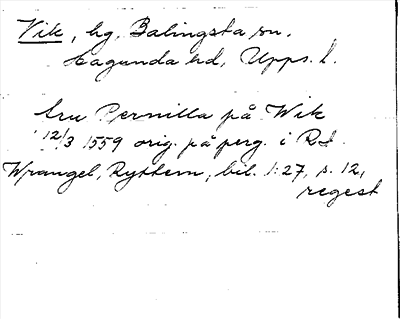 Vik, hg, Balingsta sn.
Hagunda hd, Upps. l.
fru Pernilla på Wik
12/3 1559 orig. på perg. i RA.
Wrangel, Ryttern, bil. 1:27, s. 12,
regest